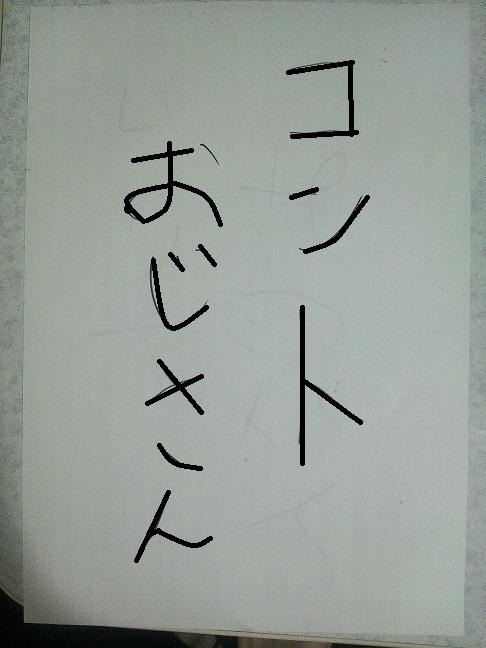 コント
おじさん